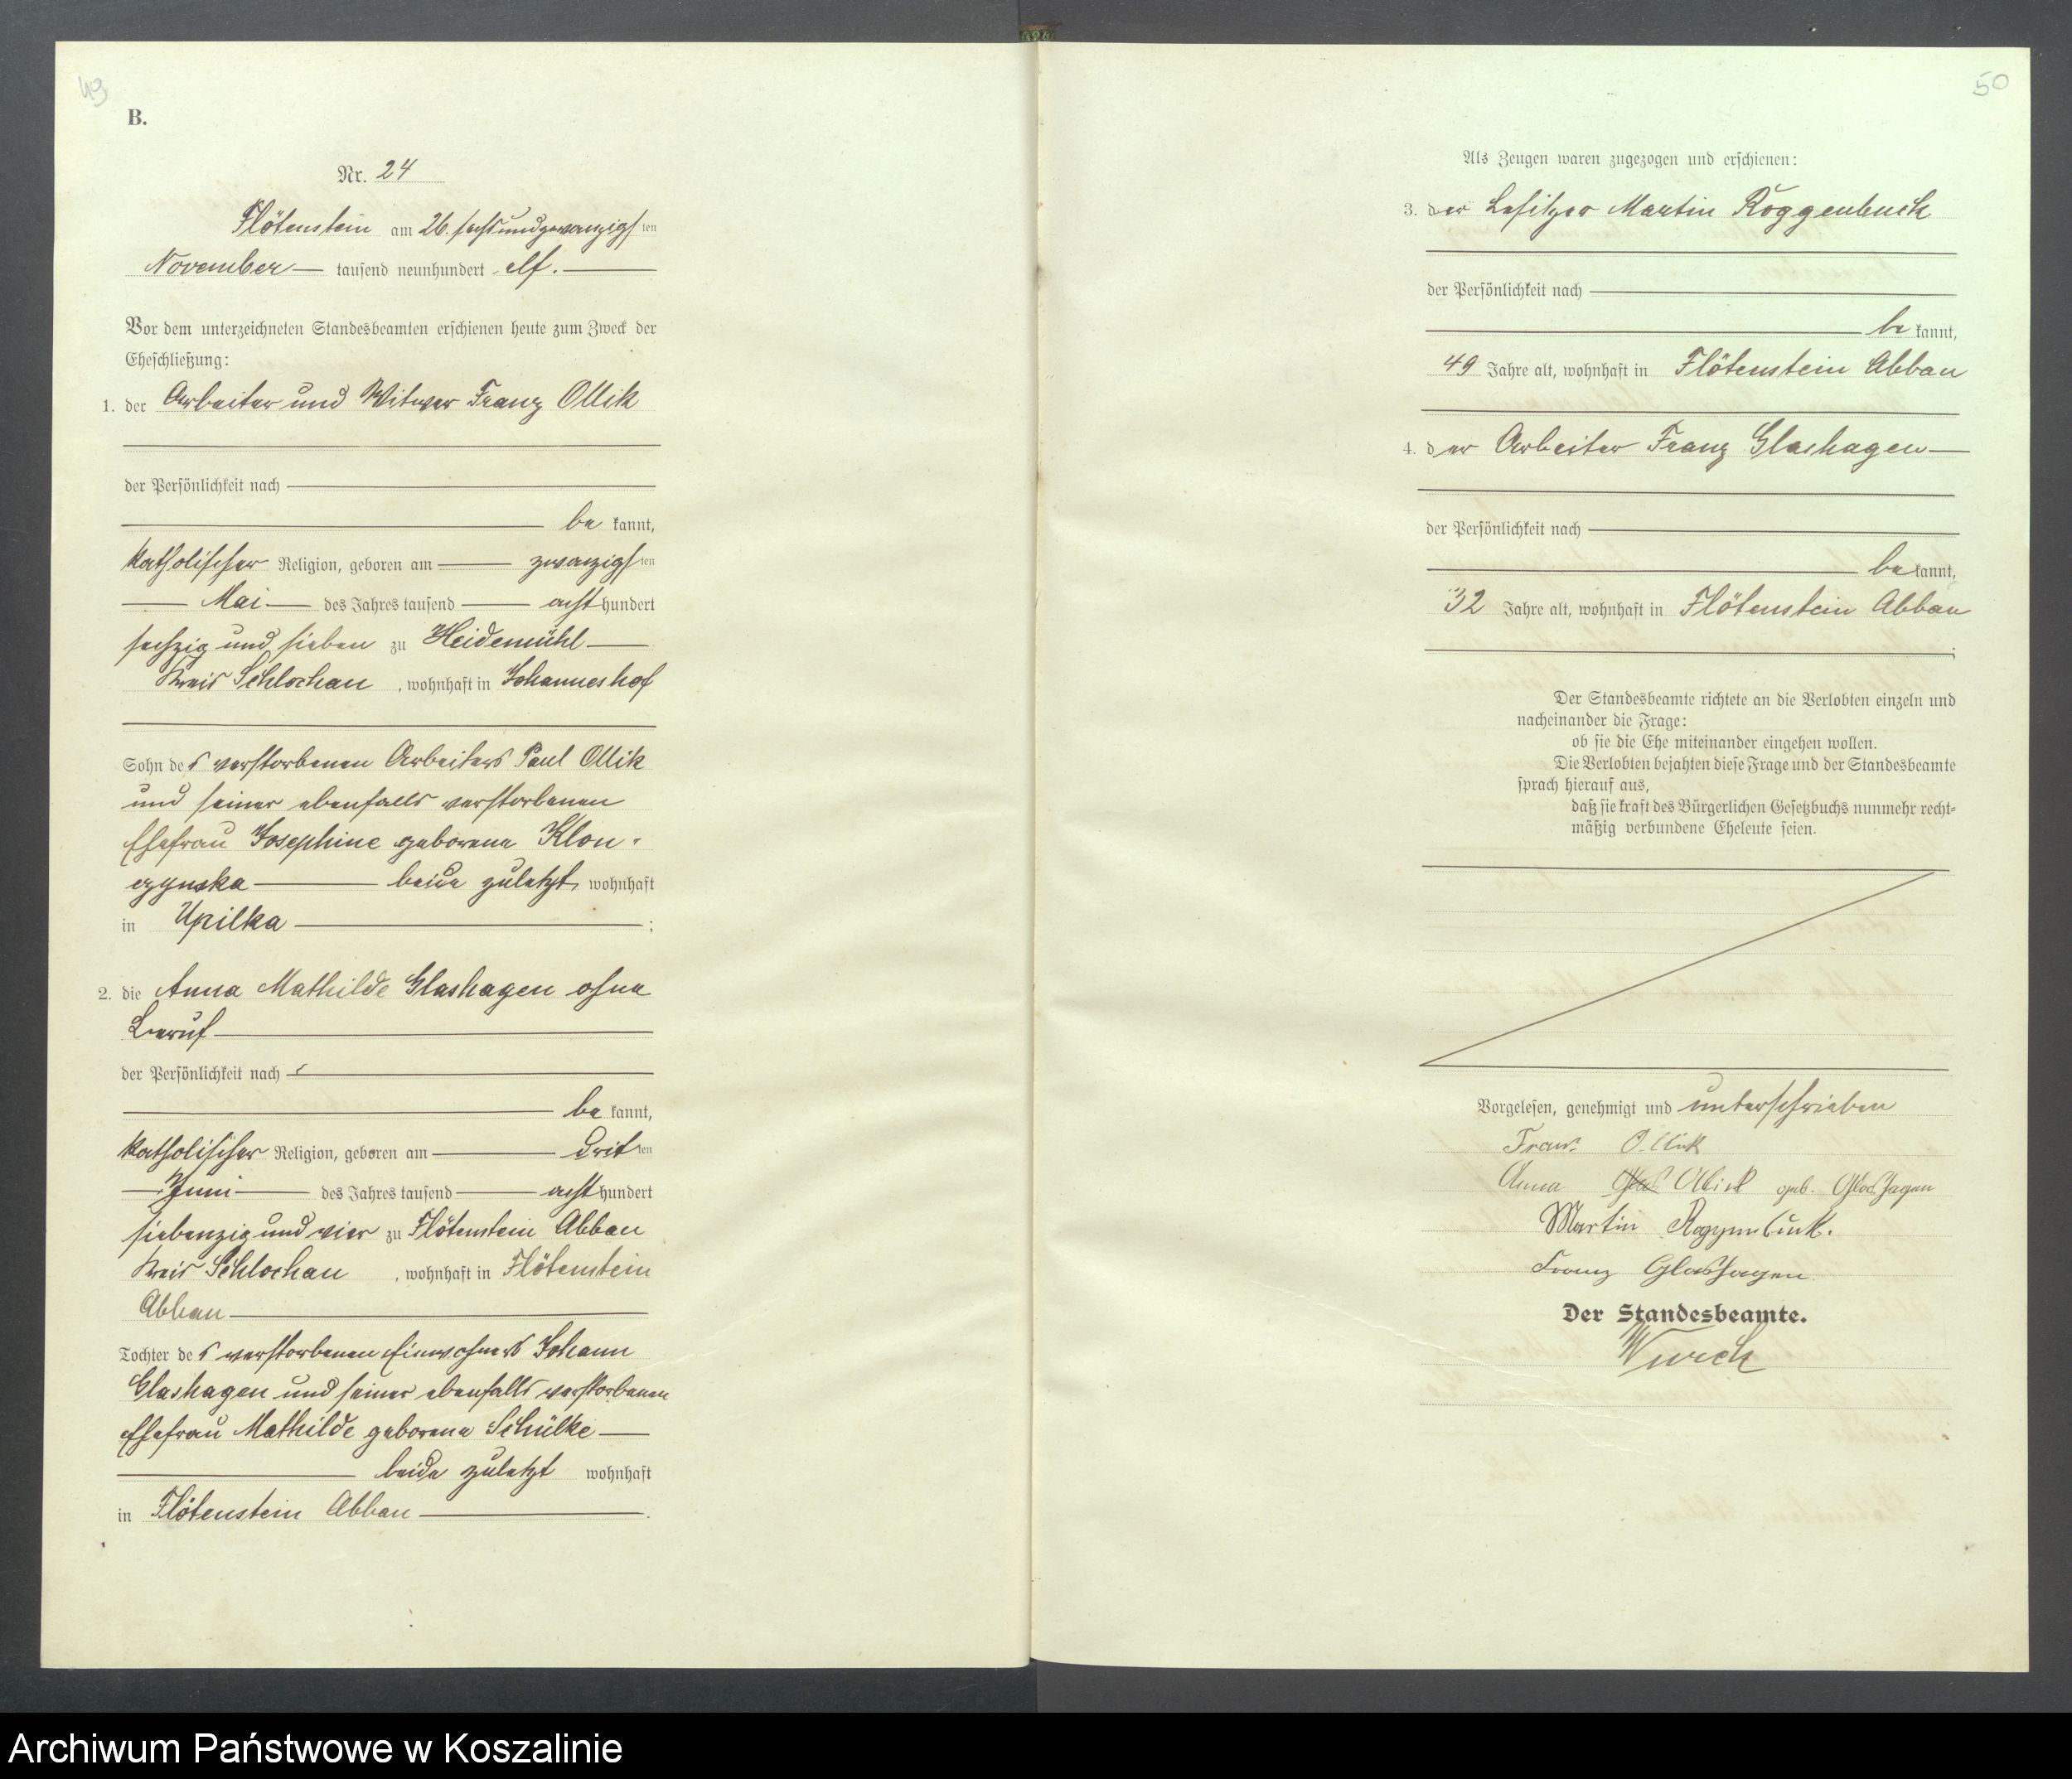 49
B.
Nr. 24
Flötenstein am 26. sechsundzwanzigsten
November tausend neunhundert elf.
Vor dem unterzeichneten Standesbeamten erschienen heute zum Zweck der
Eheschließung:
1. der Arbeiter und Witwer Franz Ollik
der Persönlichkeit nach
be kannt,
katholischer Religion, geboren am zwanzigsten
Mai des Jahres tausend acht hundert
sechzig und sieben zu Heidemühl
Kreis Schlochau, wohnhaft in Johanneshof
Sohn des verstorbenen Arbeiters Paul Ollik
und seiner ebenfalls verstorbenen
Ehefrau Josephine geborene Klon-
czynska beide zuletzt wohnhaft
in Upilka ;
2. die Anna Mathilde Glashagen ohne
Beruf
der Persönlichkeit nach
be kannt,
katholischer Religion, geboren am dritten
Juni des Jahres tausend acht hundert
siebenzig und vier zu Flötenstein Abbau
Kreis Schlochau, wohnhaft in Flötenstein
Abbau
Tochter des verstorbenen Einwohners Johann
Glashagen und seiner ebenfalls verstorbenen
Ehefrau Mathilde geborene Schülke
beide zuletzt wohnhaft
in Flötenstein Abbau .
50
Als Zeugen waren zugezogen und erschienen:
3. der Besitzer Martin Roggenbuck
der Persönlichkeit nach
be kannt,
49 Jahre alt, wohnhaft in Flötenstein Abbau
4. der Arbeiter Franz Glashagen
der Persönlichkeit nach
be kannt,
32 Jahre alt, wohnhaft in Flötenstein Abbau
;
Der Standesbeamte richtete an die Verlobten einzeln und
nacheinander die Frage:
ob sie die Ehe miteinander eingehen wollen.
Die Verlobten bejahten diese Frage und der Standesbeamte
sprach hierauf aus,
daß sie kraft des Bürgerlichen Gesetzbuchs nunmehr recht-
mäßig verbundene Eheleute seien.
Vorgelesen, genehmigt und unterschrieben
Franz Ollik
Anna Glas Ollik geb. Glashagen
Martin Roggenbuck.
Franz Glashagen
Der Standesbeamte.
Wurch
Archiwum Państwowe w Koszalinie